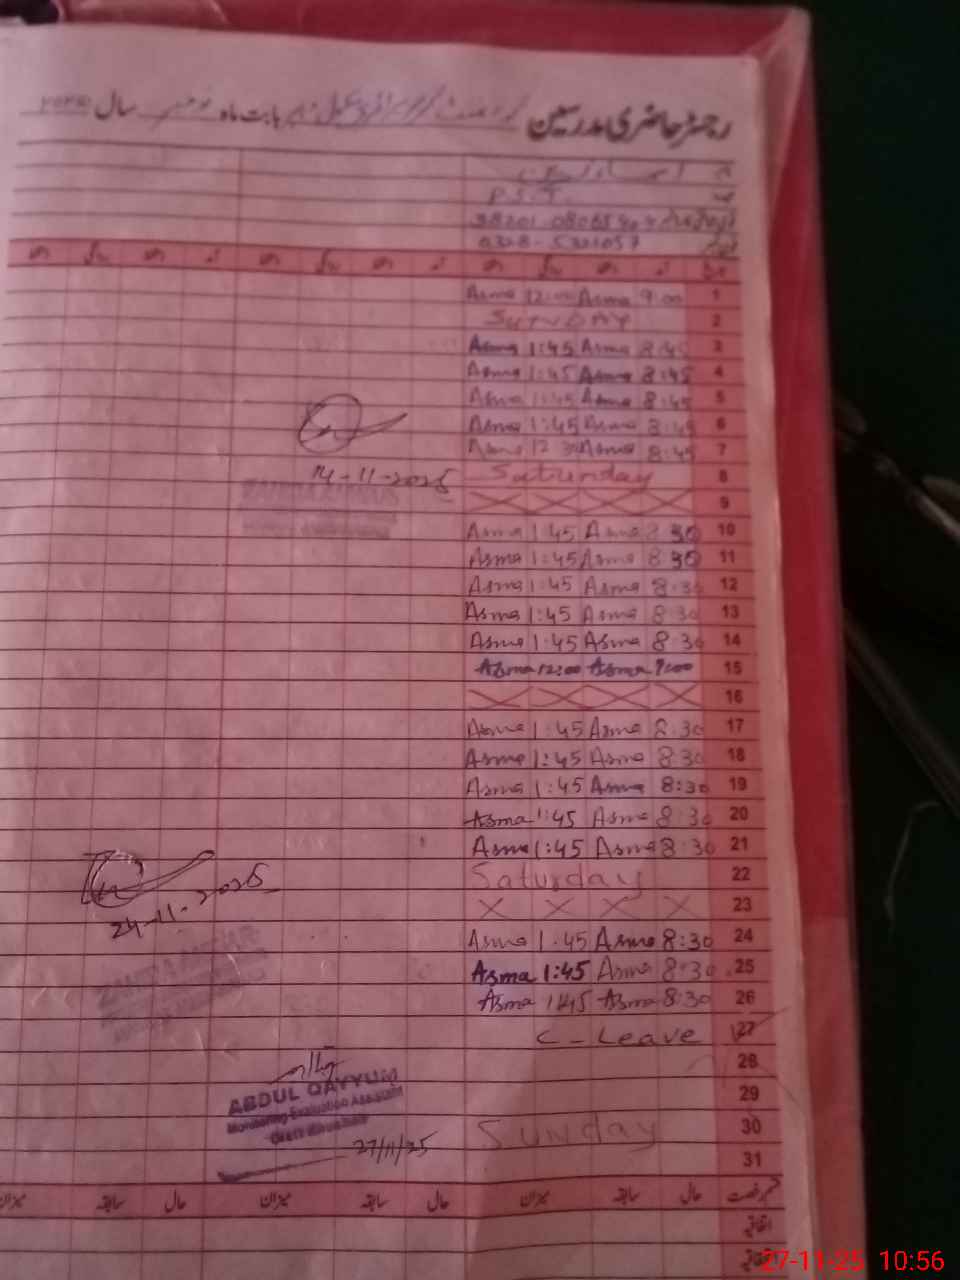 رجسٹر حاضری مدرسین بابت ماہ نومبر سال
P.S.T.
0328-5321057
Asma 12:00 Asma 9:00 1
SUNDAY 2
Asma 1:45 Asma 8:45 3
Asma 1:45 Asma 8:45 4
Asma 1:45 Asma 8:45 5
Asma 1:45 Asma 8:45 6
Asma 12:30 Asma 8:45 7
Saturday 8
14-11-2025
9
Asma 1:45 Asma 8:30 10
Asma 1:45 Asma 8:30 11
Asma 1:45 Asma 8:30 12
Asma 1:45 Asma 8:30 13
Asma 1:45 Asma 8:30 14
Asma 12:00 Asma 9:00 15
16
Asma 1:45 Asma 8:30 17
Asma 1:45 Asma 8:30 18
Asma 1:45 Asma 8:30 19
Asma 1:45 Asma 8:30 20
Asma 1:45 Asma 8:30 21
Saturday 22
24-11-2025
23
Asma 1:45 Asma 8:30 24
Asma 1:45 Asma 8:30 25
Asma 1:45 Asma 8:30 26
C-Leave 27
28
ABDUL QAYYUM
Monitoring Evaluation Assistant
29
Sunday 30
27/11/25
31
قسم رخصت حال سابقہ میزان حال سابقہ میزان حال سابقہ میزان
اتفاقیہ
27-11-25 10:56